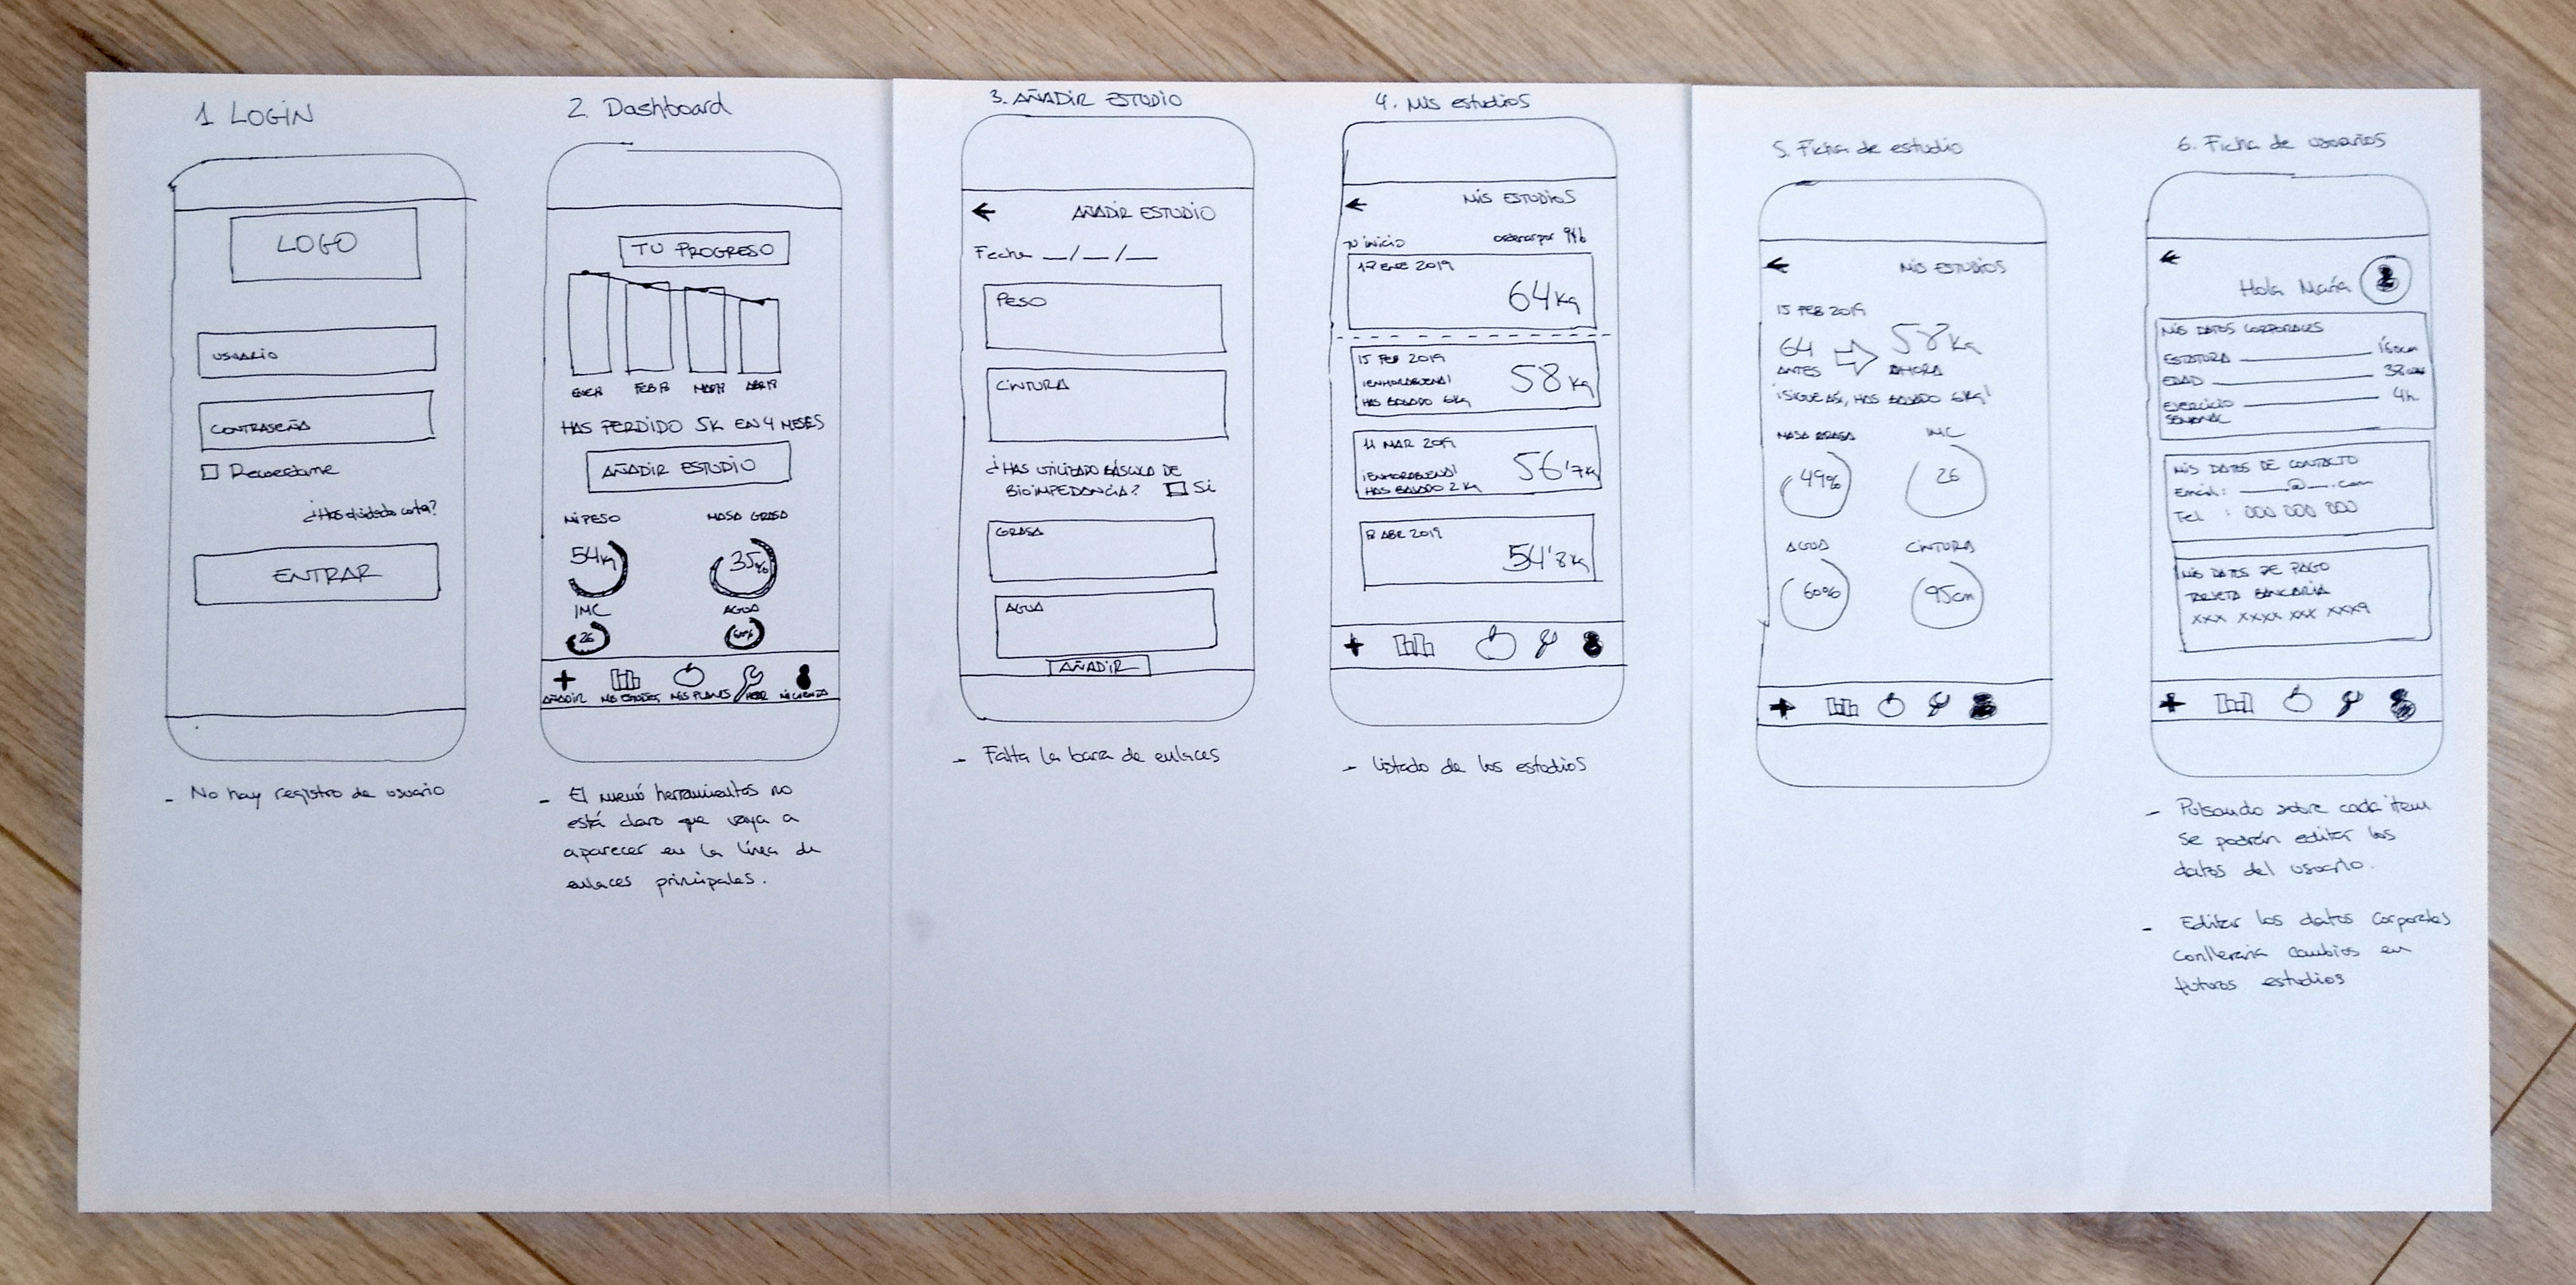 1 LOGIN
LOGO
USUARIO
CONTRASEÑA
Recuerdame
¿Has olvidado contra?
ENTRAR
- No hay registro de usuario
2. Dashboard
TU PROGRESO
ENE19 FEB19 MAR19 ABR19
HAS PERDIDO 5K EN 4 MESES
AÑADIR ESTUDIO
MI PESO MASA GRASA
54kg 35%
IMC AGUA
26 60%
AÑADIR MIS ESTUDIOS MIS PLANES HERR MI CUENTA
- El menú herramientas no
está claro que vaya a
aparecer en la línea de
enlaces principales.
3. AÑADIR ESTUDIO
AÑADIR ESTUDIO
Fecha __/__/__
PESO
CINTURA
¿HAS UTILIZADO BÁSCULA DE
BIOIMPEDANCIA? Si
GRASA
AGUA
AÑADIR
- Falta la barra de enlaces
4. Mis estudios
MIS ESTUDIOS
TU INICIO ordenar por
17 ENE 2019
64 Kg
15 FEB 2019
¡ENHORABUENA!
HAS BAJADO 6Kg
58 Kg
11 MAR 2019
¡ENHORABUENA!
HAS BAJADO 2 Kg
56'7Kg
8 ABR 2019
54'8Kg
- Listado de los estudios
5. Ficha de estudio
MIS ESTUDIOS
15 FEB 2019
64 58 Kg
ANTES AHORA
¡SIGUE ASÍ, HAS BAJADO 6Kg!
MASA GRASA IMC
49% 26
AGUA CINTURA
60% 95cm
6. Ficha de usuarios
Hola María
MIS DATOS CORPORALES
ESTATURA 160cm
EDAD 38
EJERCICIO 4h.
SEMANAL
MIS DATOS DE CONTACTO
Email: ____@__.com
Tel : 000 000 000
MIS DATOS DE PAGO
TARJETA BANCARIA
XXX XXXX XXX XXX9
- Pulsando sobre cada item
se podrán editar los
datos del usuario.
- Editar los datos corporales
conllevaría cambios en
futuros estudios